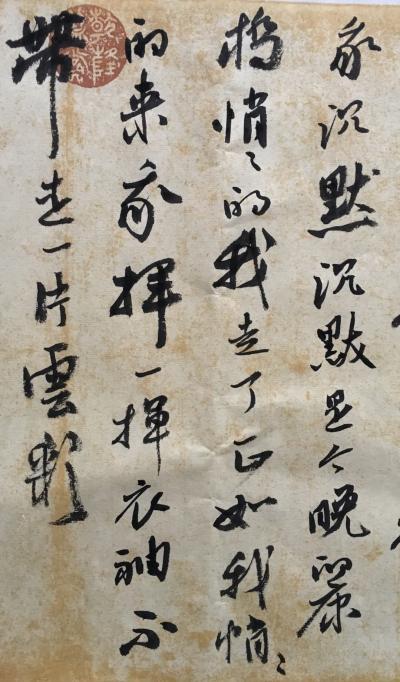 我沉默沉默是今晚的康
橋悄々的我走了正如我悄々
的来我揮一揮衣袖不
帶走一片雲彩